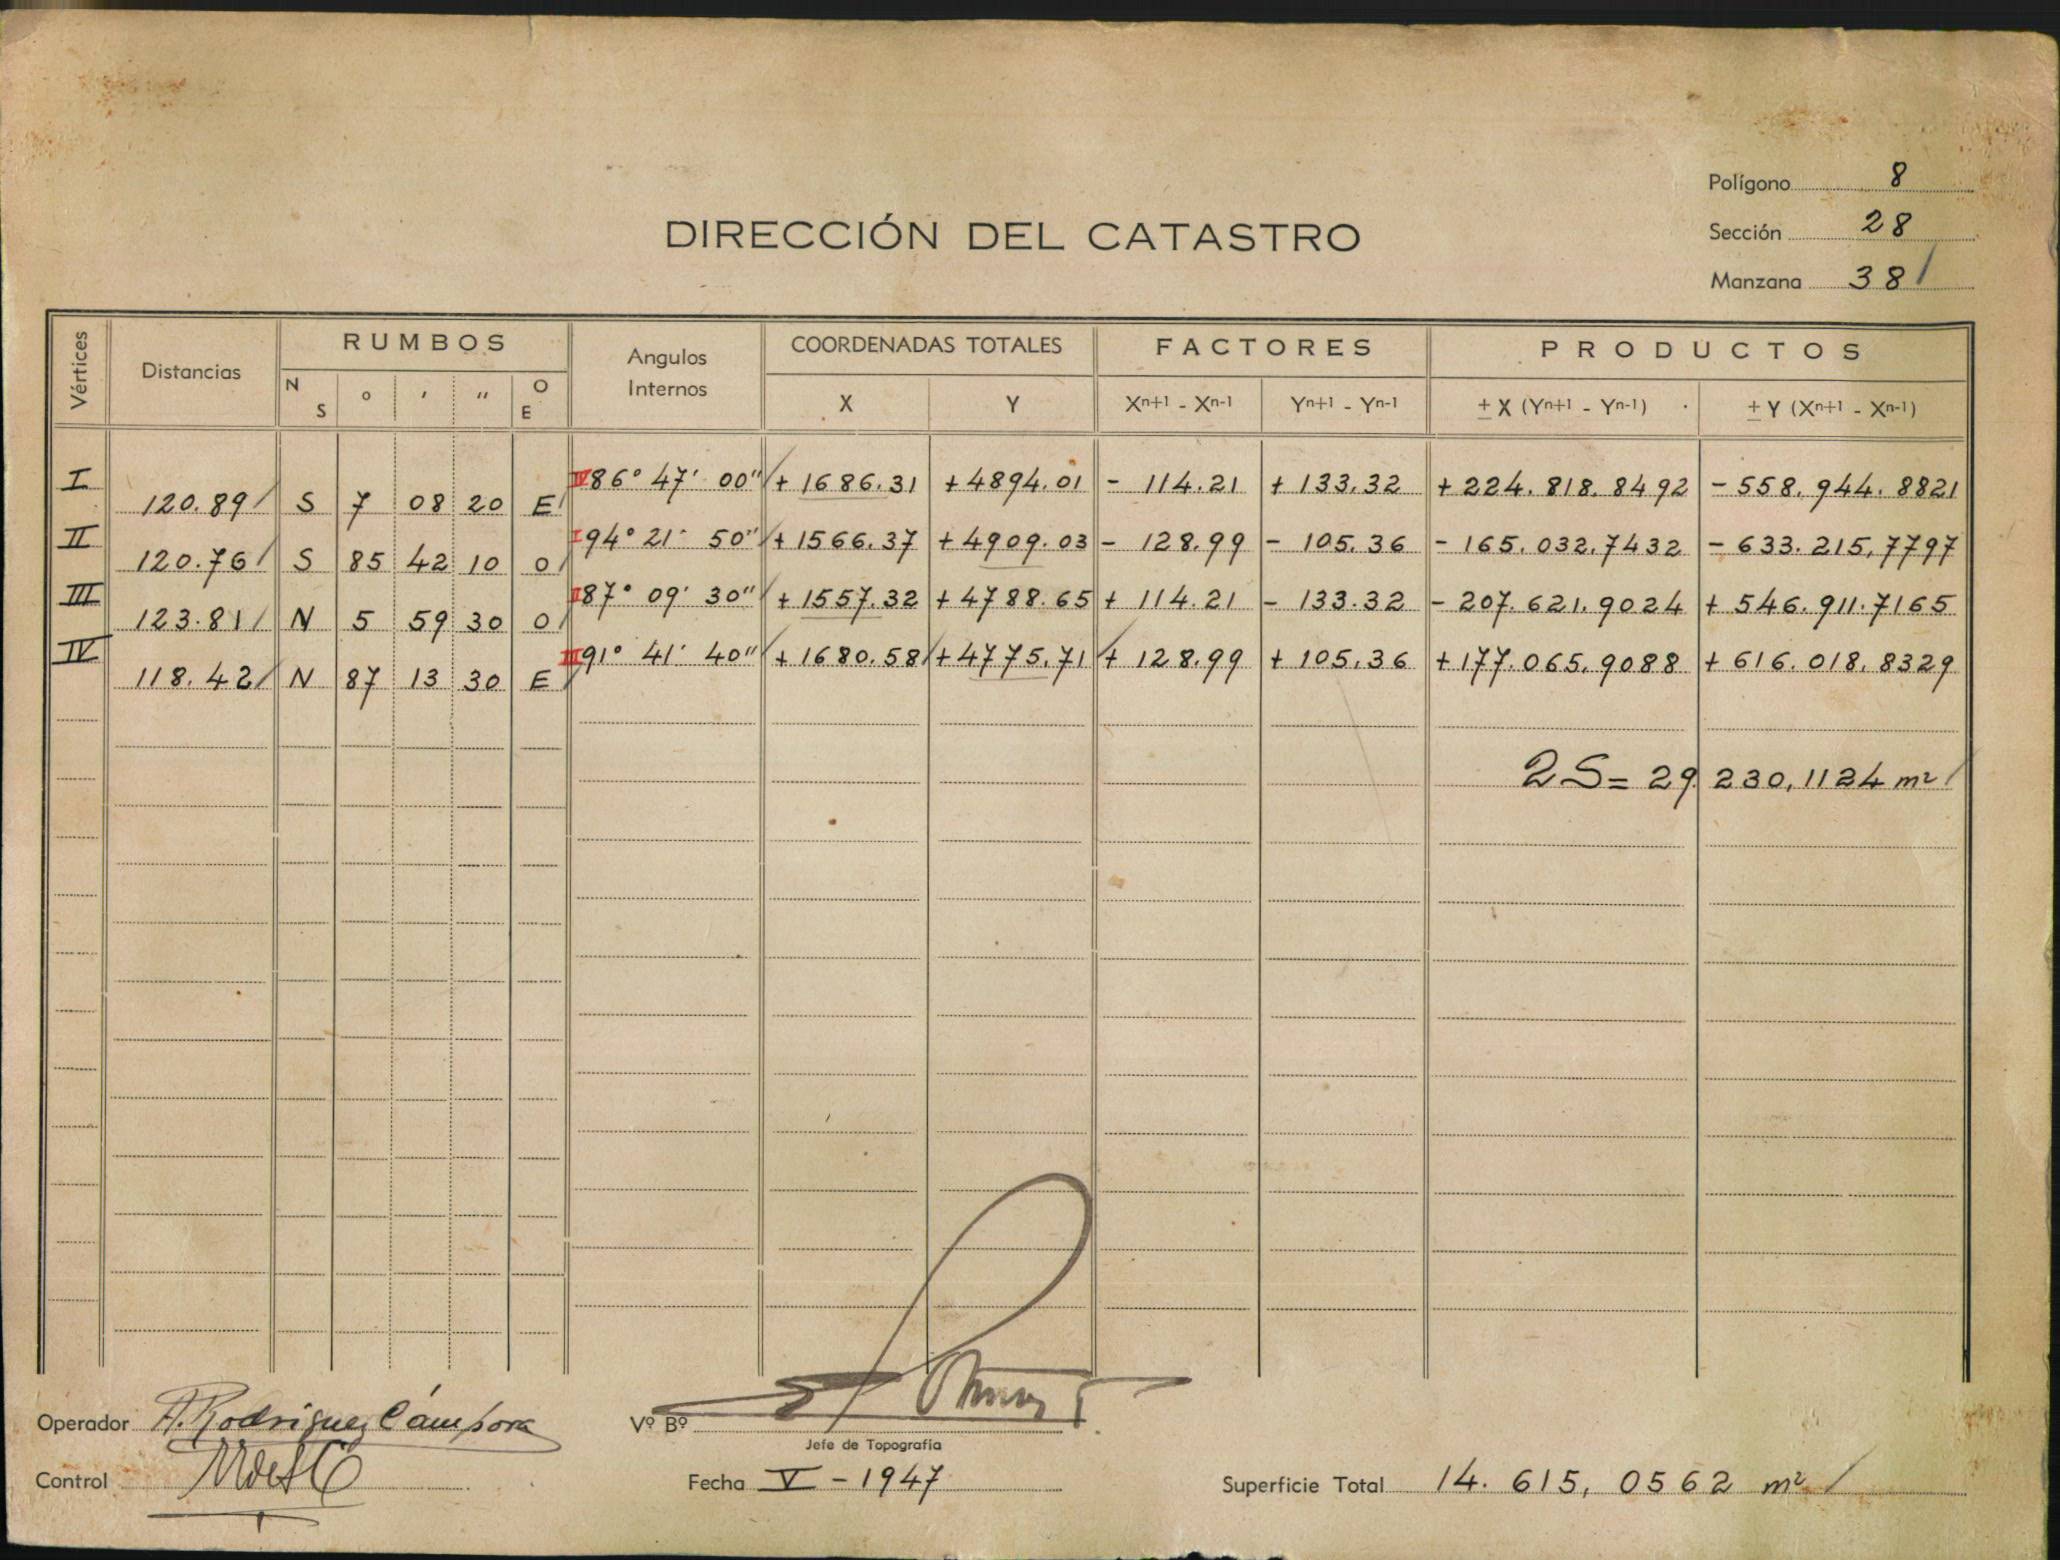 Polígono 8
DIRECCIÓN DEL CATASTRO
Sección 28
Manzana 38
Vértices Distancias RUMBOS Angulos Internos COORDENADAS TOTALES FACTORES PRODUCTOS
N S ° ' " O E X Y Xn+1 - Xn-1 Yn+1 - Yn-1 ± X (Yn+1 - Yn-1) ± Y (Xn+1 - Xn-1)
I IV 86° 47' 00" + 1686.31 + 4894.01 - 114.21 + 133.32 + 224.818.8492 - 558.944.8821
120.89 S 7 08 20 E
II I 94° 21' 50" + 1566.37 + 4909.03 - 128.99 - 105.36 - 165.032,7432 - 633.215,7797
120.76 S 85 42 10 O
III II 87° 09' 30" + 1557.32 + 4788.65 + 114.21 - 133.32 - 207.621.9024 + 546.911.7165
123.81 N 5 59 30 O
IV III 91° 41' 40" + 1680.58 + 4775.71 + 128.99 + 105.36 + 177.065.9088 + 616.018.8329
118.42 N 87 13 30 E
2S = 29.230,1124 m²
Operador A. Rodriguez Cámpora Vº Bº
Jefe de Topografía
Control Fecha V - 1947 Superficie Total 14.615,0562 m²